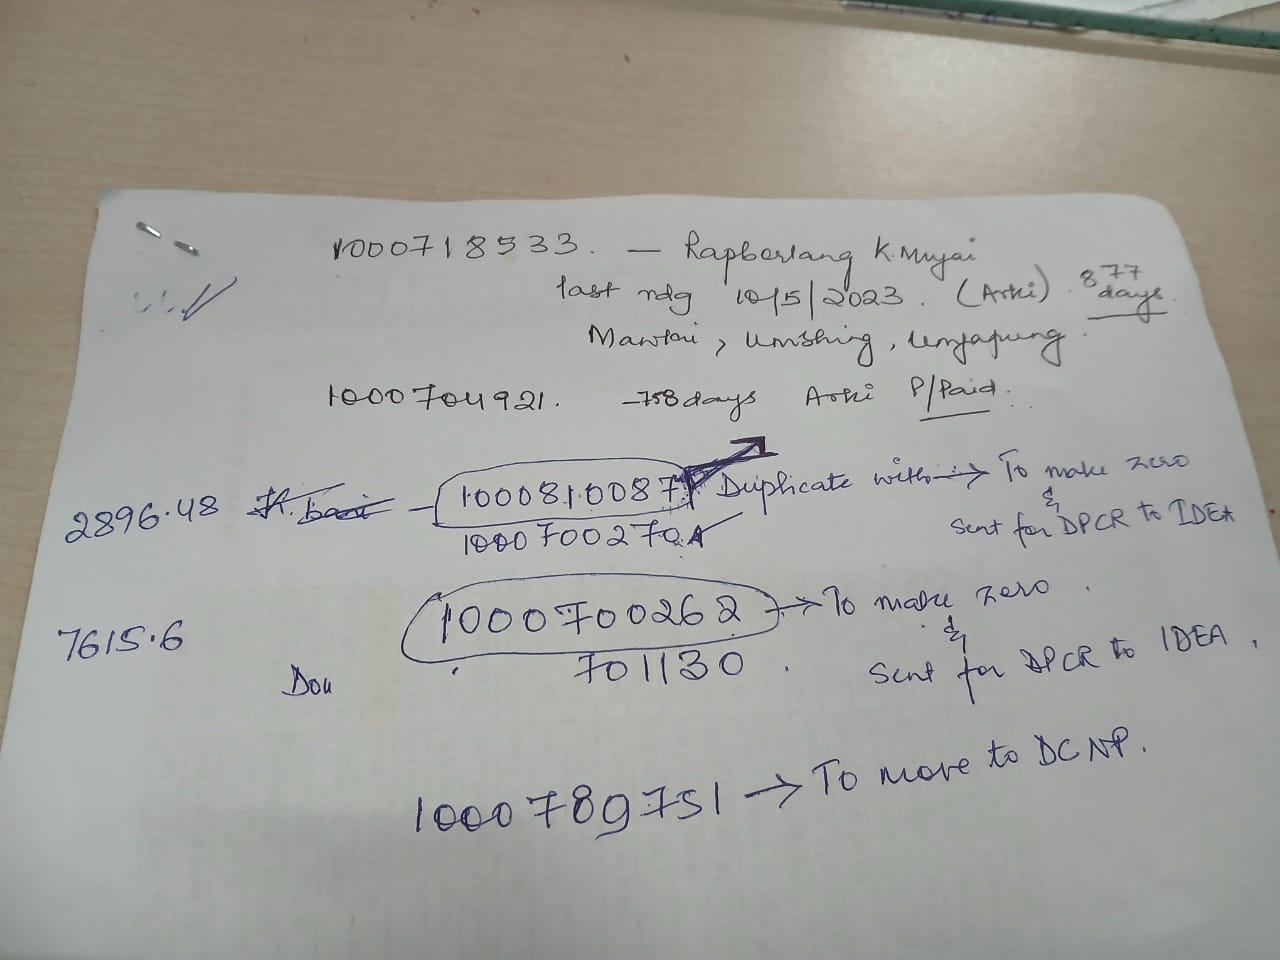 1000718533. — Rapborlang K. Mujai
last rdg 10/5/2023. (Arki) 877 days
Mawlai, Umshing,
1000704921. - 758 days Arki P/Paid.
2896.48 — 1000810087 Duplicate with → To make zero
& Sent for DPCR to IDEA
1000700270
7615.6 1000700262 → To make zero.
& Sent for DPCR to IDEA.
701130.
Dou
1000789751 → To move to DCNP.